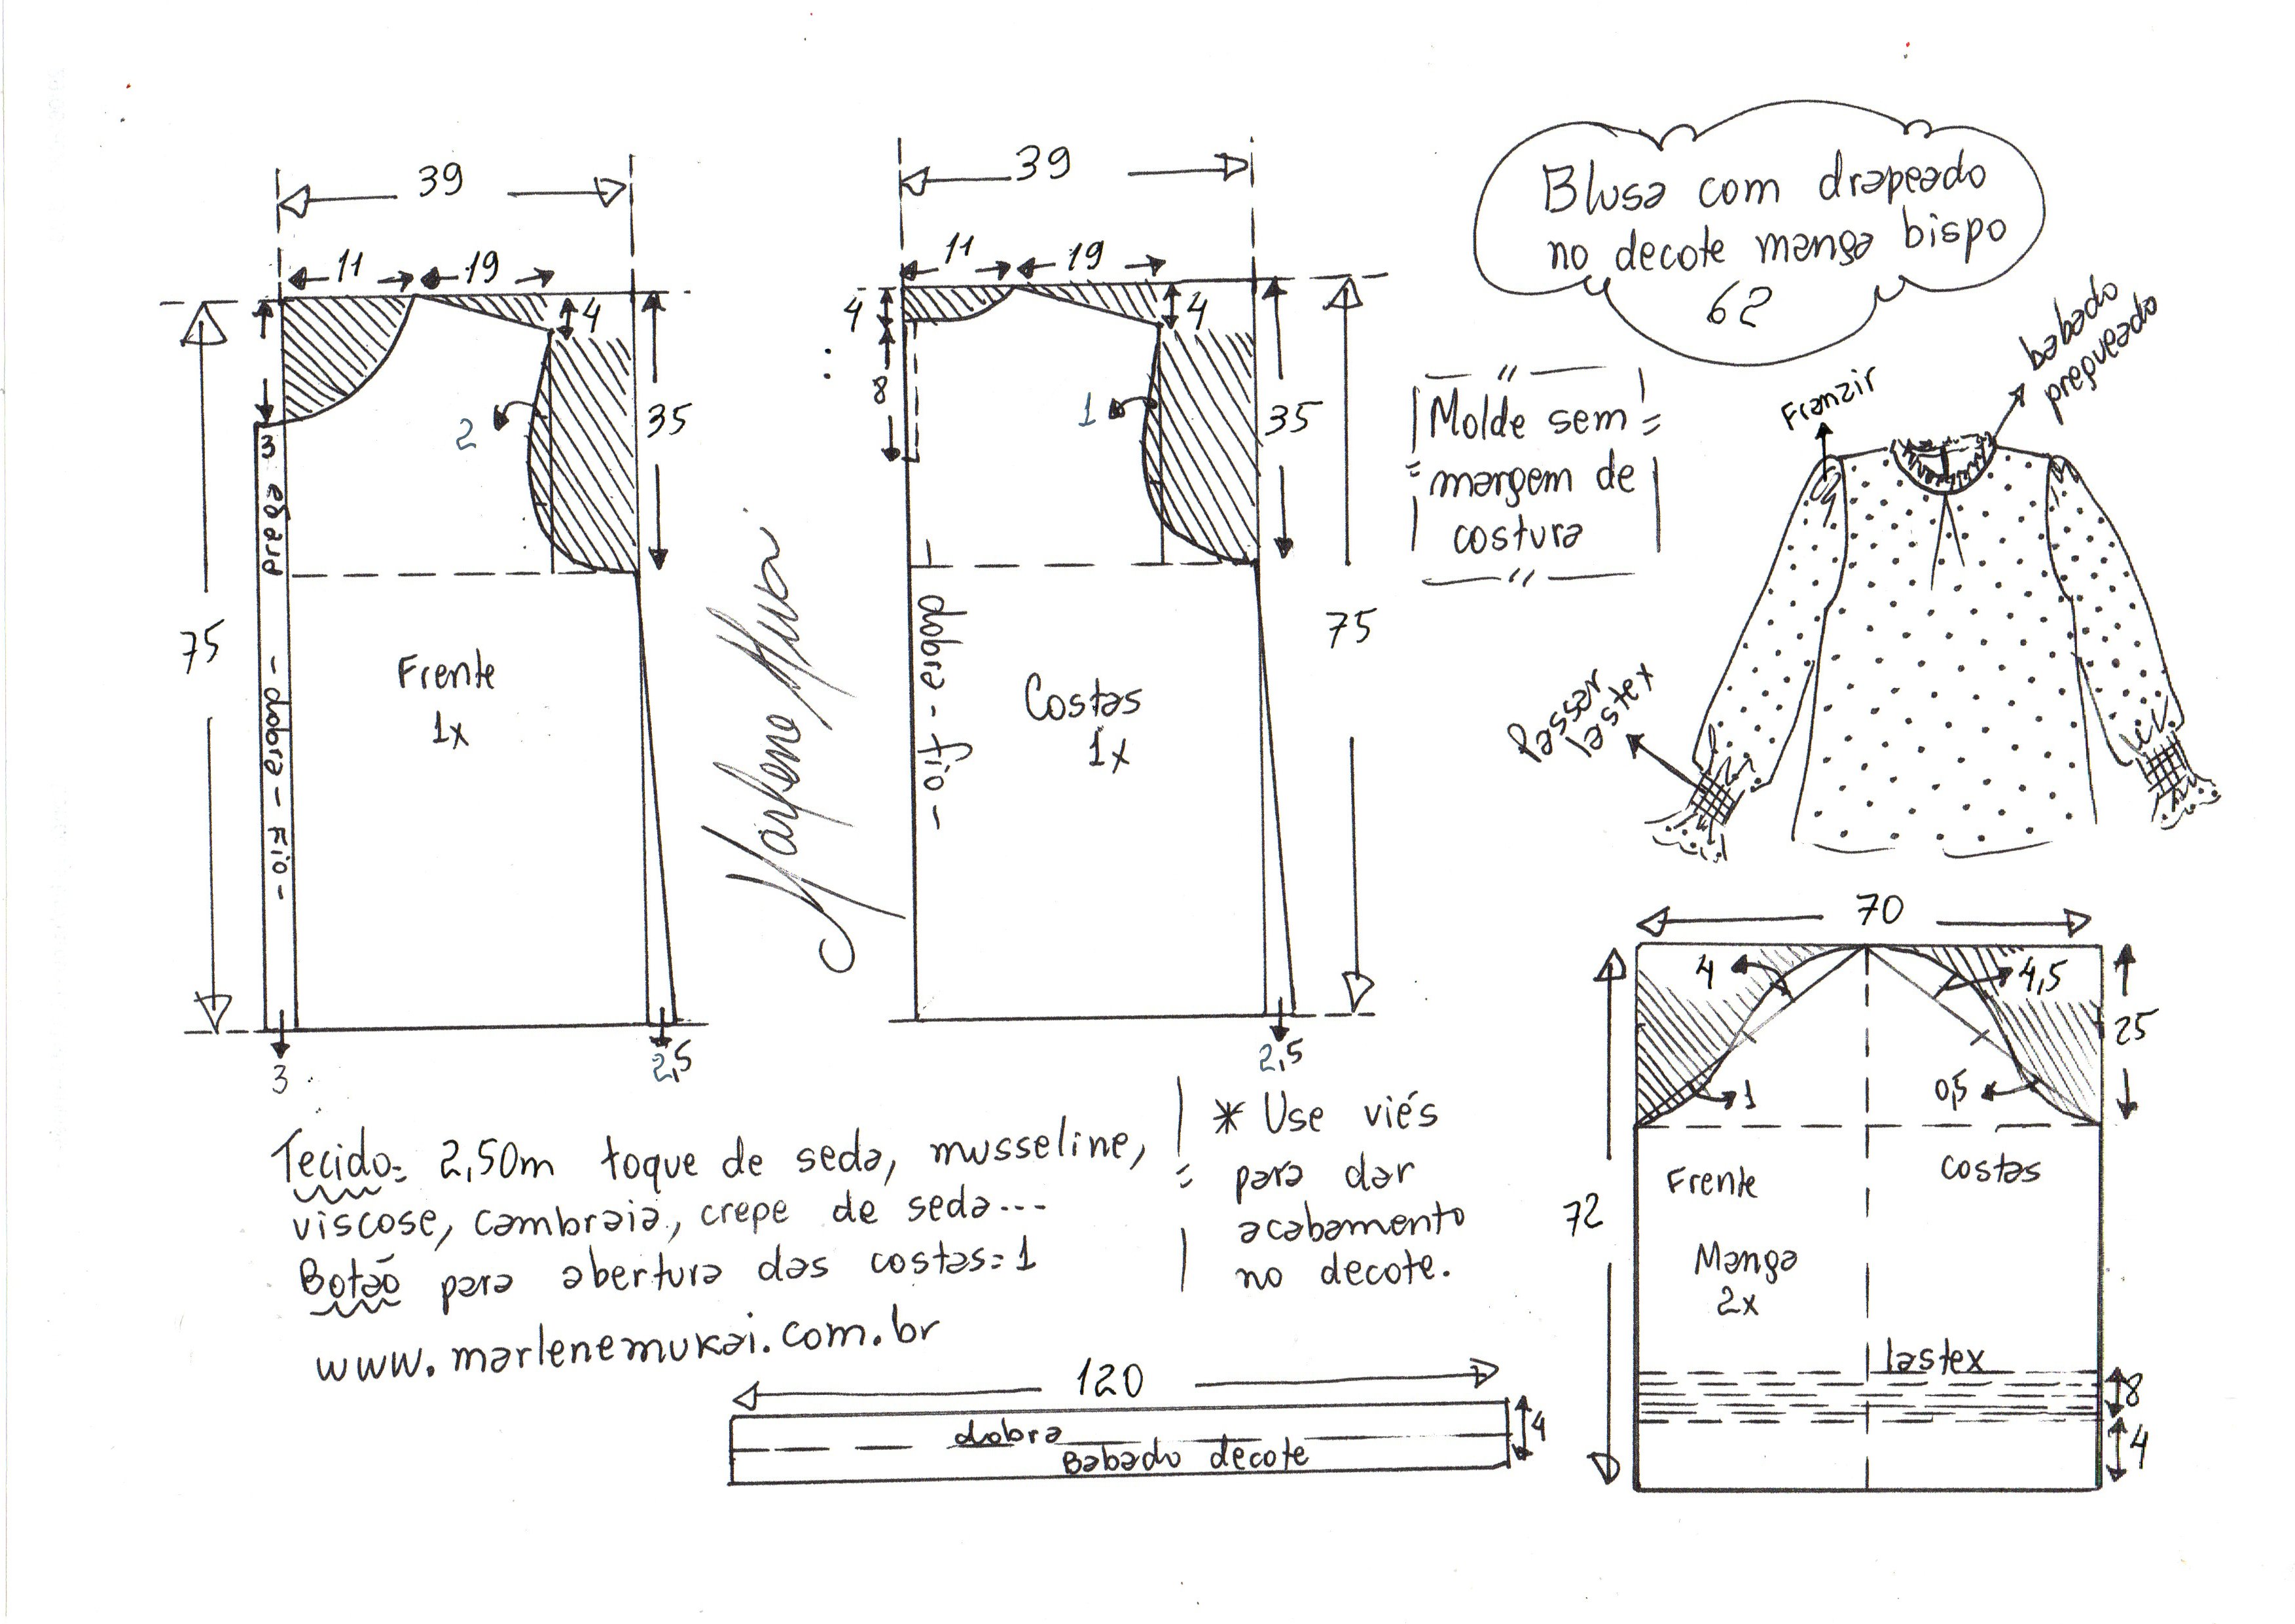 39
11
19
4
35
3
2
prega
75
- dobra - Fio -
Frente
1x
3
2,5
39
11
19
4
4
8
1
35
75
dobra - fio -
Costas
1x
2,5
Blusa com drapeado
no decote manga bispo
62
Molde sem
margem de
costura
Franzir
babado
pregueado
Passar
lastex
70
4
4,5
25
1
0,5
72
Frente
costas
Manga
2x
lastex
8
4
Tecido: 2,50m toque de seda, musseline,
viscose, cambraia, crepe de seda...
Botão para abertura das costas=1
www.marlenemukai.com.br
* Use viés
para dar
acabamento
no decote.
120
dobra
Babado decote
4